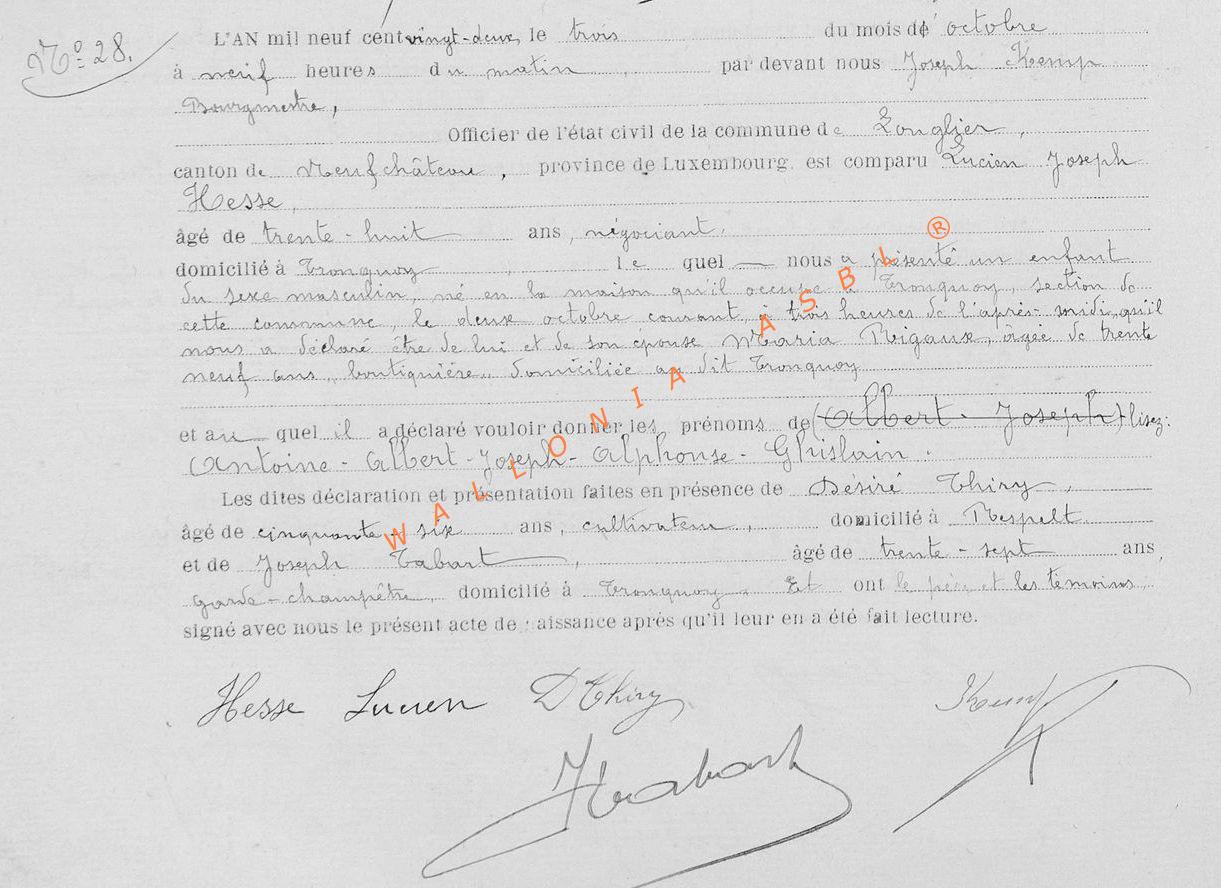 N° 28.
L'AN mil neuf cent vingt-deux, le trois du mois de octobre
à neuf heures du matin, par devant nous Joseph Kemp
Bourgmestre,
Officier de l'état civil de la commune de Longlier,
canton de Neufchâteau, province de Luxembourg. est comparu Lucien Joseph
Hesse,
âgé de trente-huit ans, négociant,
domicilié à Tronquoy, le quel — nous a présenté un enfant
du sexe masculin, né en la maison qu'il occupe à Tronquoy, section de
cette commune, le deux octobre courant, à trois heures de l'après-midi, qu'il
nous a déclaré être de lui et de son épouse Maria Rigaux, âgée de trente
neuf ans, boutiquière, domiciliée au dit Tronquoy
et au quel il a déclaré vouloir donner les prénoms de (Albert-Joseph) lisez:
Antoine-Albert-Joseph-Alphonse-Ghislain.
Les dites déclaration et présentation faites en présence de Désiré Thiry,
âgé de cinquante-six ans, cultivateur, domicilié à Respelt
et de Joseph Tabart, âgé de trente-sept ans,
garde-champêtre, domicilié à Tronquoy. Et ont le père et les témoins
signé avec nous le présent acte de naissance après qu'il leur en a été fait lecture.
Hesse Lucien DThiry Kemp
WALLONIA ASBL ®